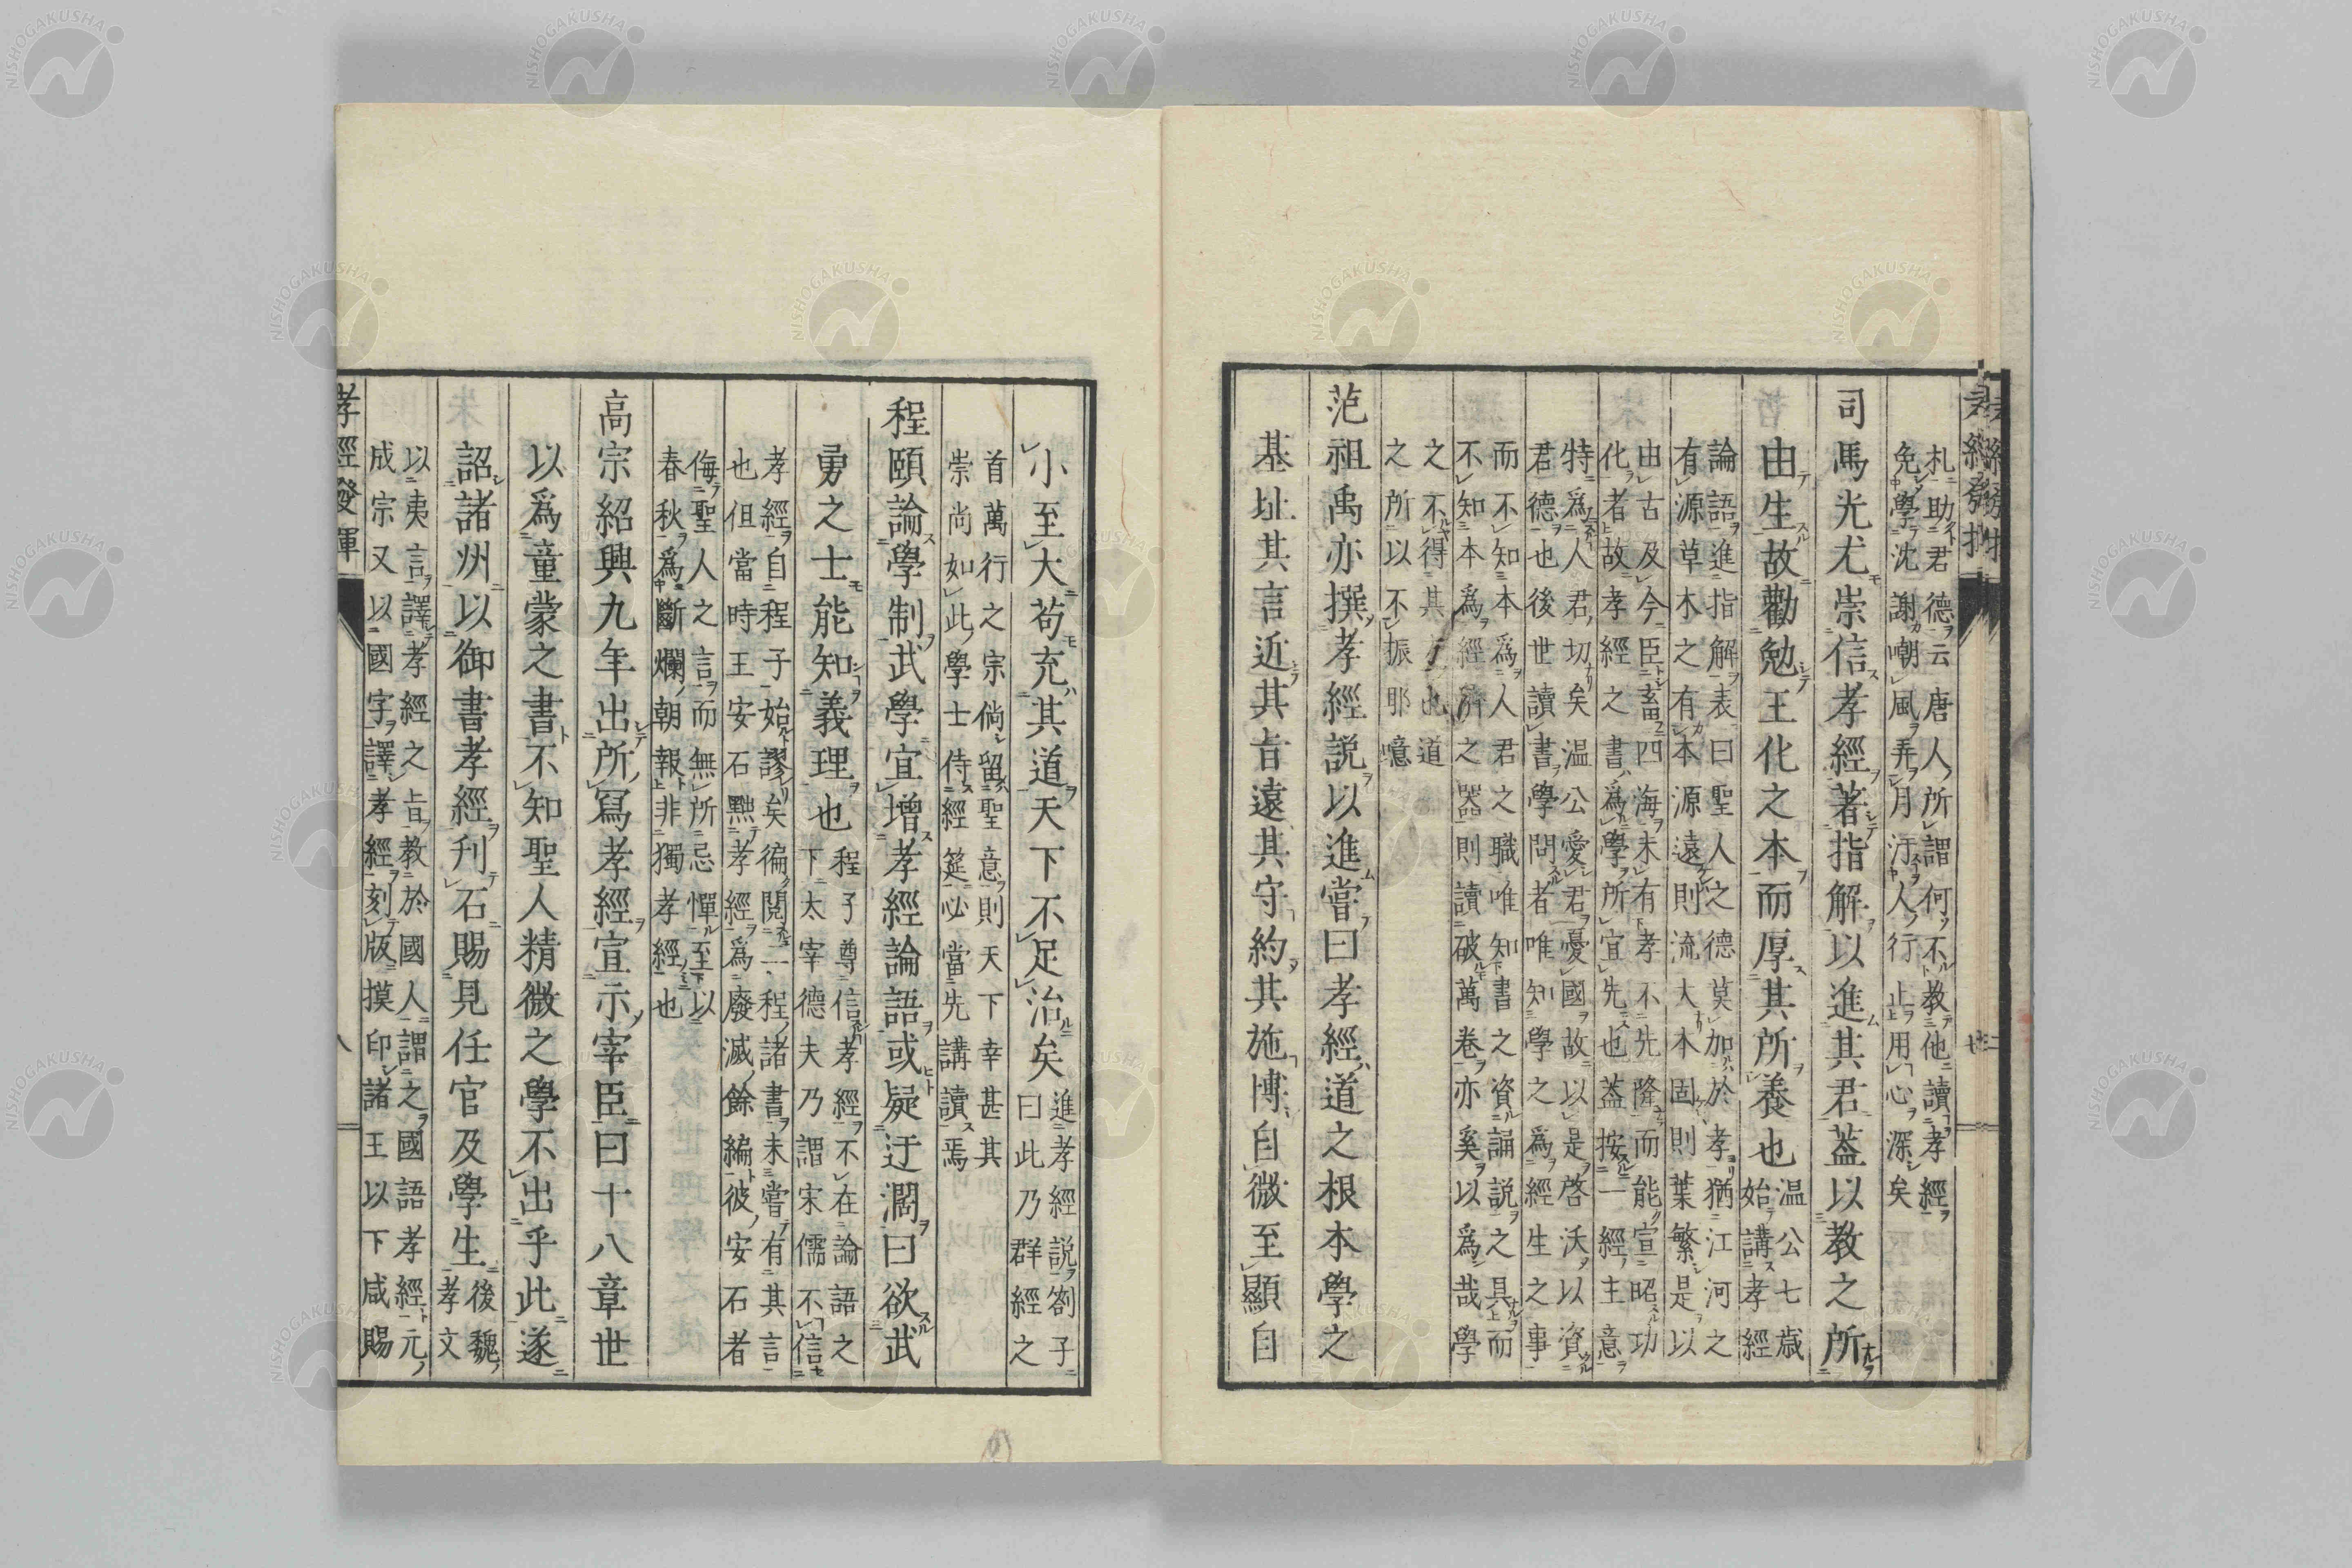 札助君德云唐人所謂何不教他讀孝經
免學沈謝嘲風弄月汙人行止用心深矣
司馬光尤崇信孝經著指解以進其君蓋以教之所
由生故勸勉王化之本而厚其所養也
温公七歳
始講孝經
論語進指解表曰聖人之德莫加於孝猶江河之
有源草木之有本源遠則流大本固則葉繁是以
由古及今臣畜四海未有孝不先隆而能宣昭功
化者故孝經之書爲學所宜先也蓋按一經主意
特爲人君切矣温公愛君憂國故以是啓沃以資
君德也後世讀書學問者唯知學之爲經生之事
而不知本爲人君之職唯知書之資誦説之具而
不知本爲經濟之器則讀破萬卷亦奚以爲哉學
之不得其也道
之所以不振耶噫
范祖禹亦撰孝經説以進嘗曰孝經道之根本學之
基址其言近其旨遠其守約其施博自微至顯自
小至大苟充其道天下不足治矣
進孝經説劄子
曰此乃群經之
首萬行之宗倘留聖意則天下幸甚其
崇尚如此學士侍經筵必當先講讀焉
程頤論學制武學宜增孝經論語或疑迂濶曰欲武
勇之士能知義理也
程子尊信孝經不在論語之
下太宰德夫乃謂宋儒不信
孝經自程子始謬矣徧閲二程諸書未嘗有其言
也但當時王安石黜孝經爲廢滅餘編彼安石者
侮聖人之言而無所忌憚至以
春秋爲斷爛朝報非獨孝經也
高宗紹興九年出所寫孝經宣示宰臣曰十八章世
以爲童蒙之書不知聖人精微之學不出乎此遂
詔諸州以御書孝經刋石賜見任官及學生
後魏
孝文
以夷言譯孝經之旨教於國人謂之國語孝經元
成宗又以國字譯孝經刻版摸印諸王以下咸賜
孝經發揮
八